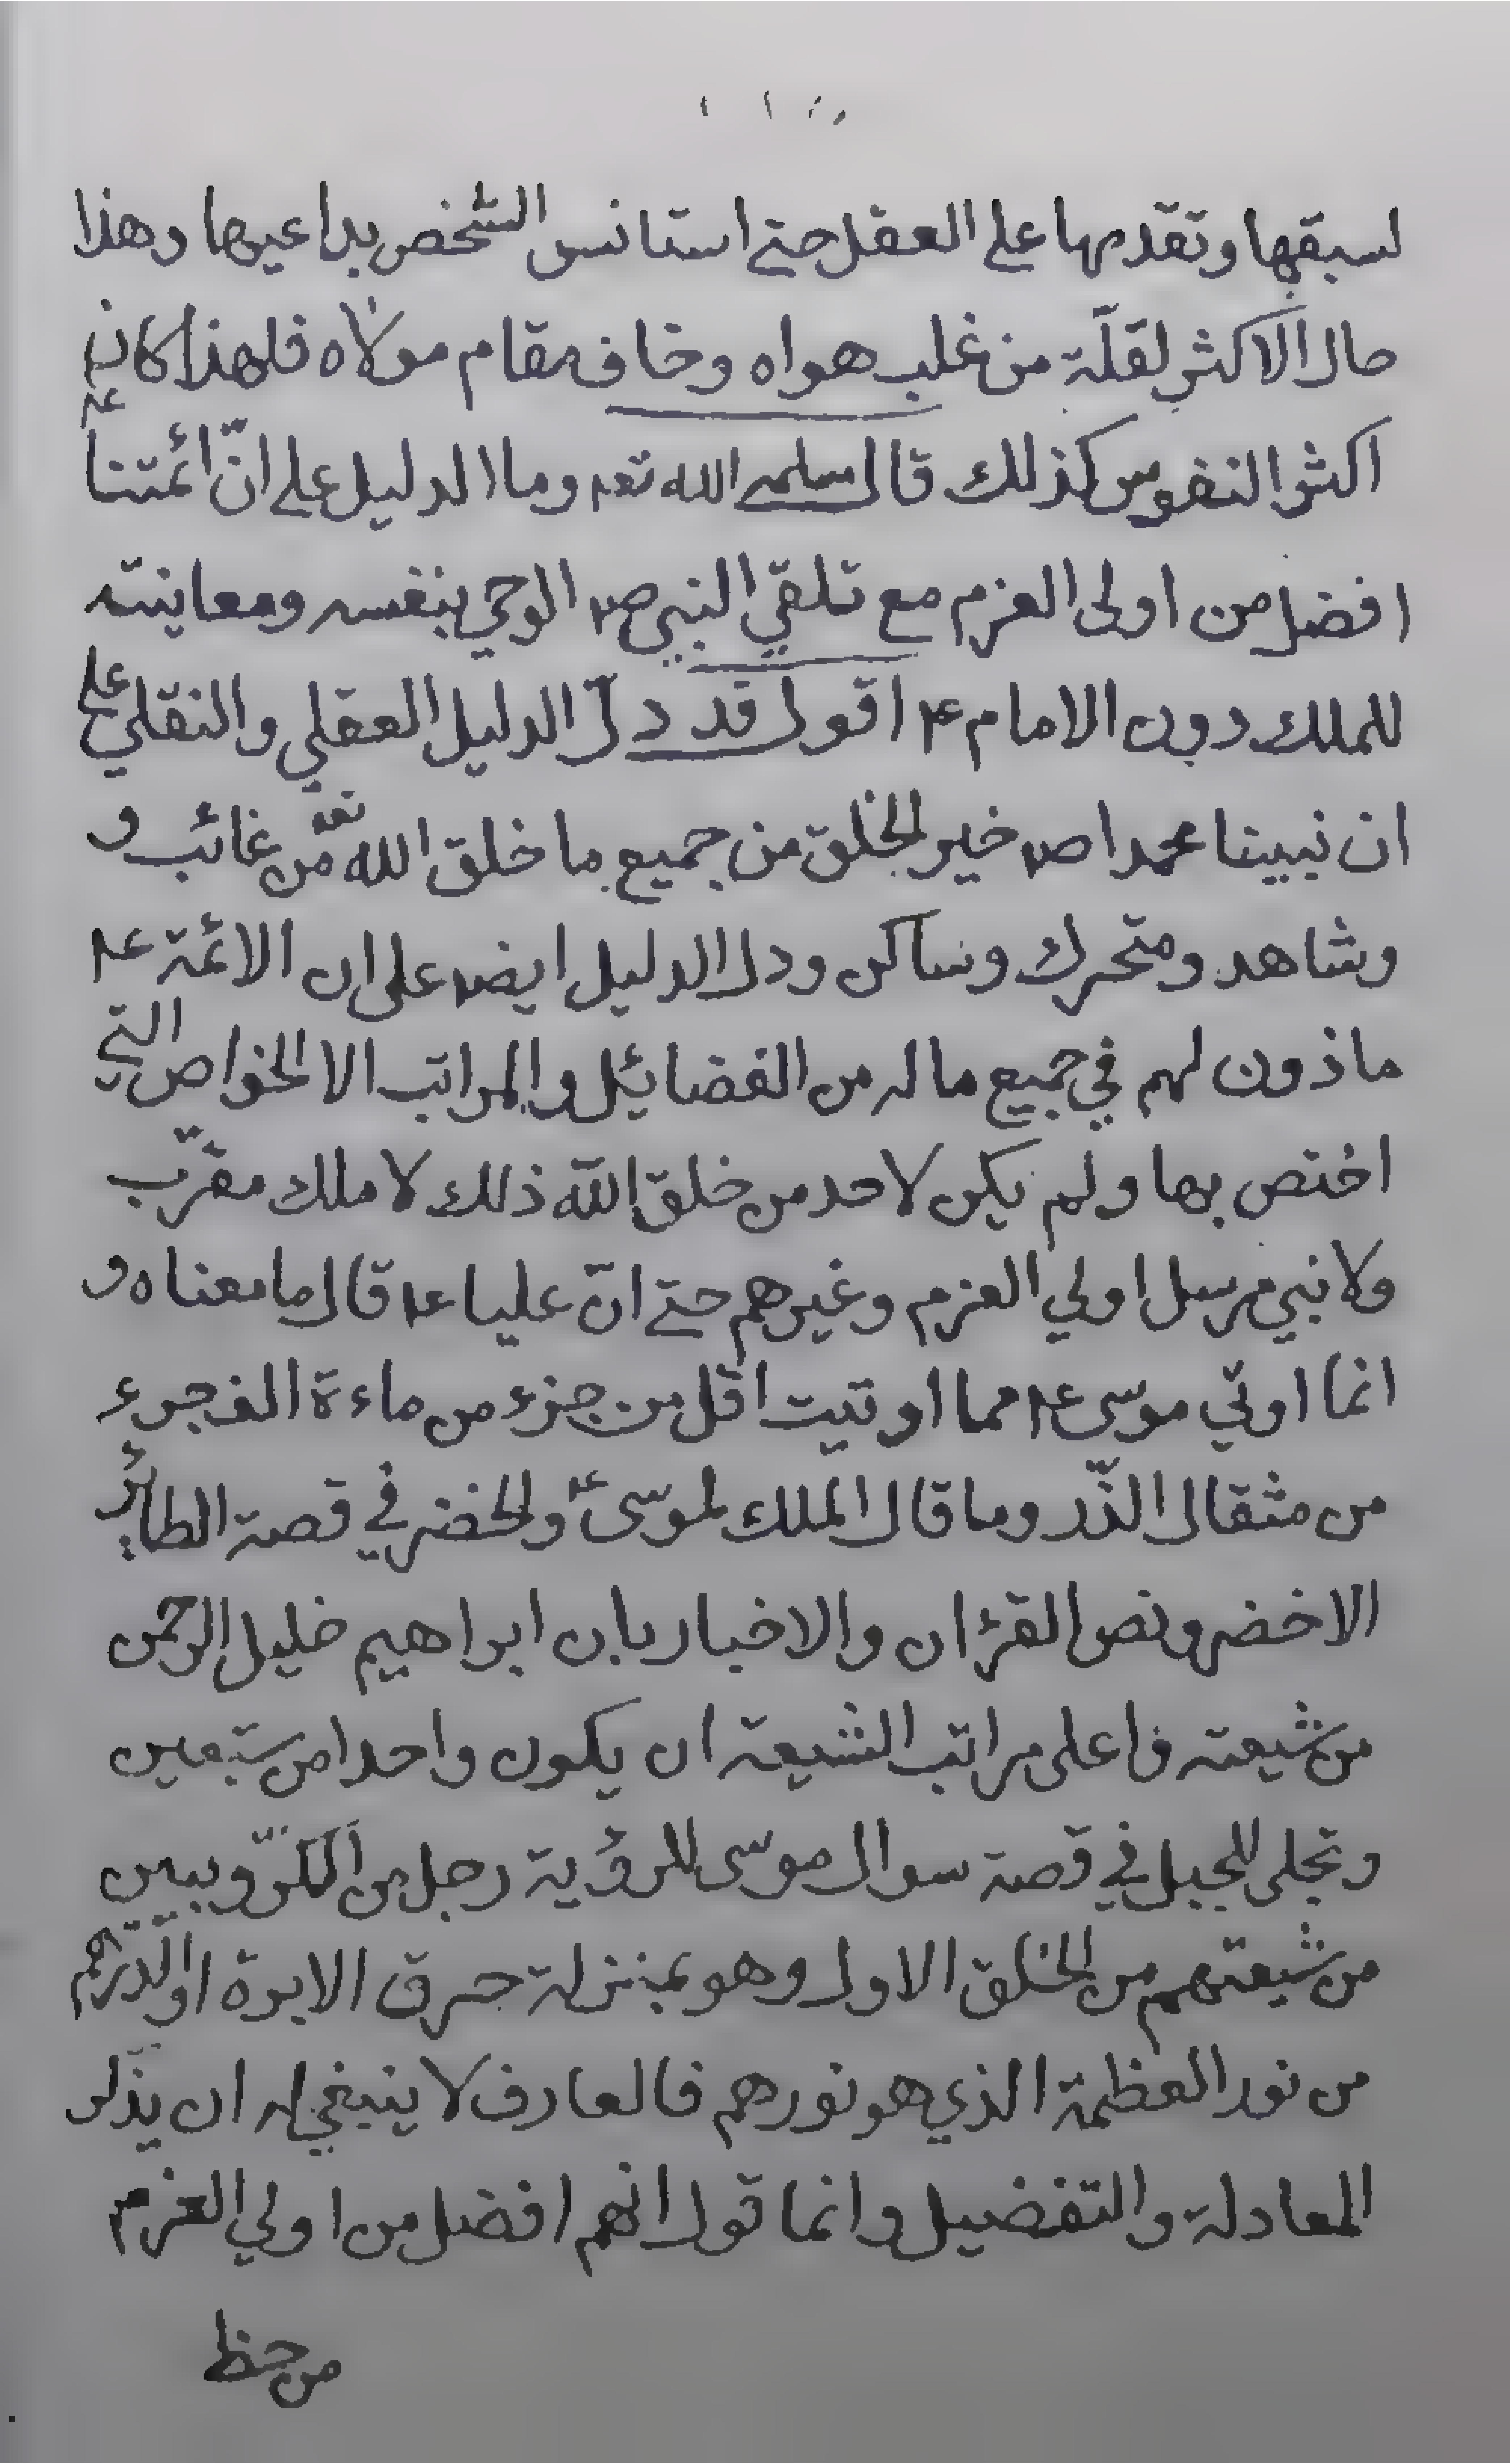 لسبقها وتقدمها على العقل حتى استانس الشخص بداعيها وهذا
حال الاكثر لقلّة من غلب هواه وخاف مقام مولاه فلهذا كان
اكثر النفوس كذلك قال سلمه الله تعم وما الدليل على انّ ائمتنا ع۴
افضل من اولى العزم مع تلقي النبي صم الوحي بنفسه ومعاينته
للملك دون الامام ع۴ اقول قد دلّ الدليل العقلي والنقلي على
ان نبينا محمدا صم خير الخلق من جميع ما خلق الله تعم من غائب و
وشاهد ومتحرك وساكن ودل الدليل ايضم على ان الائمة عم
ماذون لهم في جميع ماله من الفضايئل والمراتب الا الخواص التي
اختص بها ولم يكن لاحد من خلق الله ذلك لا ملك مقرّب
ولا نبي مرسل اولي العزم وغيرهم حتى انّ عليا عم قال ما معناه و
انما اوتي موسى عم مما اوتيت اقل من جزء من ماءة الف جزء
من مثقال الذّر وما قال الملك لموسى ع۴ ولخضر في قصة الطائر
الاخضر ونص القرءان والاخبار بان ابراهيم خليل الرحمن
من شيعته فاعلى مراتب الشيعة ان يكون واحدا من سبعين
وتجلى للجبل في قصة سوال موسى للرؤية رجل من الكرّوبيين
من شيعتهم من الخلق الاول وهو بمنزلة خرق الابرة او الدرهم
من نور العظمة الذي هو نورهم فالعارف لا ينبغي له ان يذكر
المعادلة والتفضيل وانما تول انهم افضل من اولي العزم
من حظ